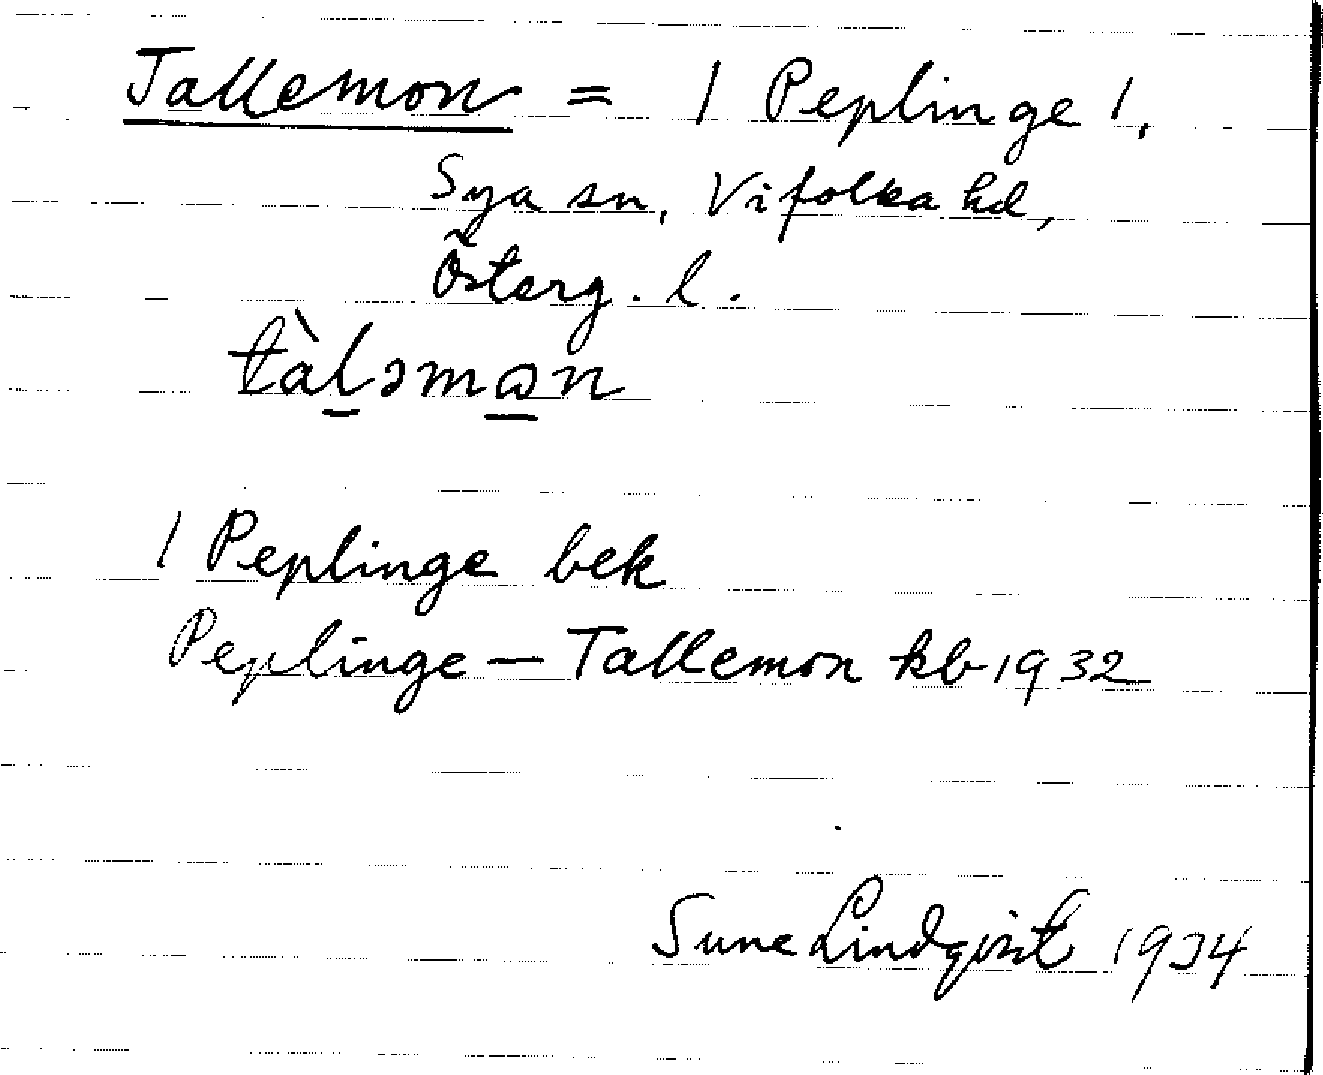 Tallemon = / Peplinge 1,
Sya sn, Vifolka hd,
Österg. l.
tàlǝmǝn
/ Peplinge bek
Peplinge — Tallemon kb 1932
Sune Lindqvist 1934